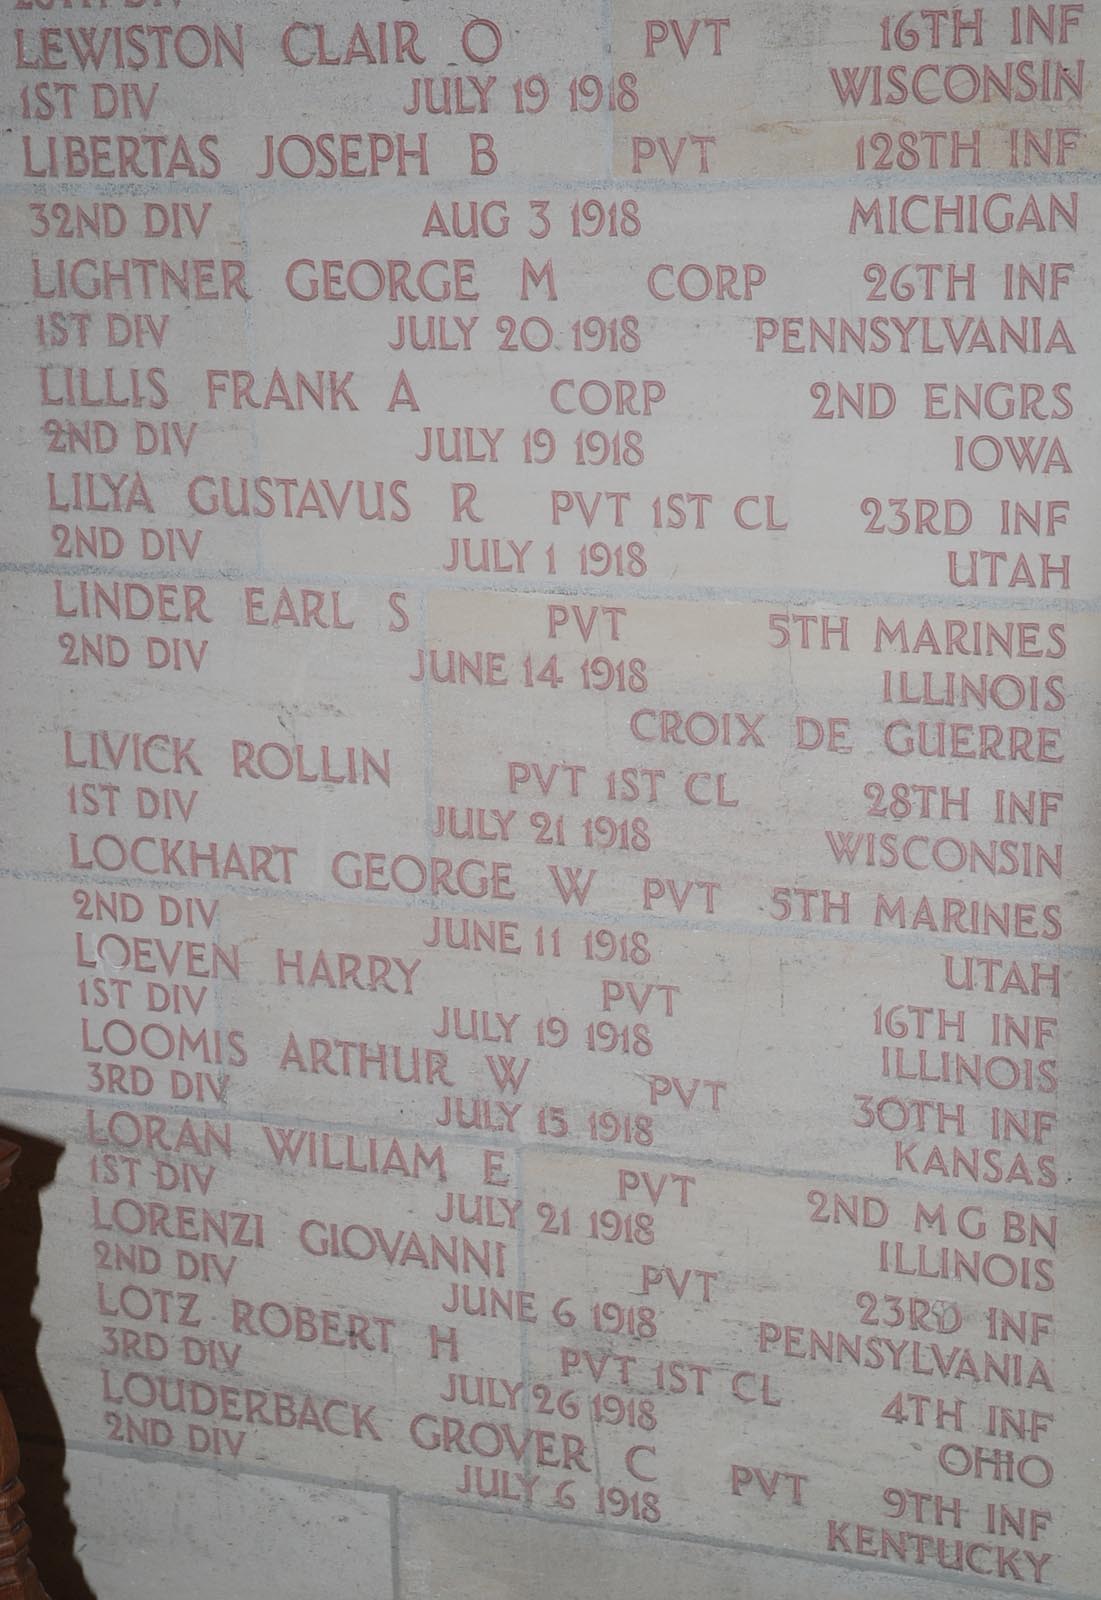 LEWISTON CLAIR O PVT 16TH INF
1ST DIV JULY 19 1918 WISCONSIN
LIBERTAS JOSEPH B PVT 128TH INF
32ND DIV AUG 3 1918 MICHIGAN
LIGHTNER GEORGE M CORP 26TH INF
1ST DIV JULY 20 1918 PENNSYLVANIA
LILLIS FRANK A CORP 2ND ENGRS
2ND DIV JULY 19 1918 IOWA
LILYA GUSTAVUS R PVT 1ST CL 23RD INF
2ND DIV JULY 1 1918 UTAH
LINDER EARL S PVT 5TH MARINES
2ND DIV JUNE 14 1918 ILLINOIS
CROIX DE GUERRE
LIVICK ROLLIN PVT 1ST CL 28TH INF
1ST DIV JULY 21 1918 WISCONSIN
LOCKHART GEORGE W PVT 5TH MARINES
2ND DIV JUNE 11 1918 UTAH
LOEVEN HARRY PVT 16TH INF
1ST DIV JULY 19 1918 ILLINOIS
LOOMIS ARTHUR W PVT 30TH INF
3RD DIV JULY 15 1918 KANSAS
LORAN WILLIAM E PVT 2ND M G BN
1ST DIV JULY 21 1918 ILLINOIS
LORENZI GIOVANNI PVT 23RD INF
2ND DIV JUNE 6 1918 PENNSYLVANIA
LOTZ ROBERT H PVT 1ST CL 4TH INF
3RD DIV JULY 26 1918 OHIO
LOUDERBACK GROVER C PVT 9TH INF
2ND DIV JULY 6 1918 KENTUCKY